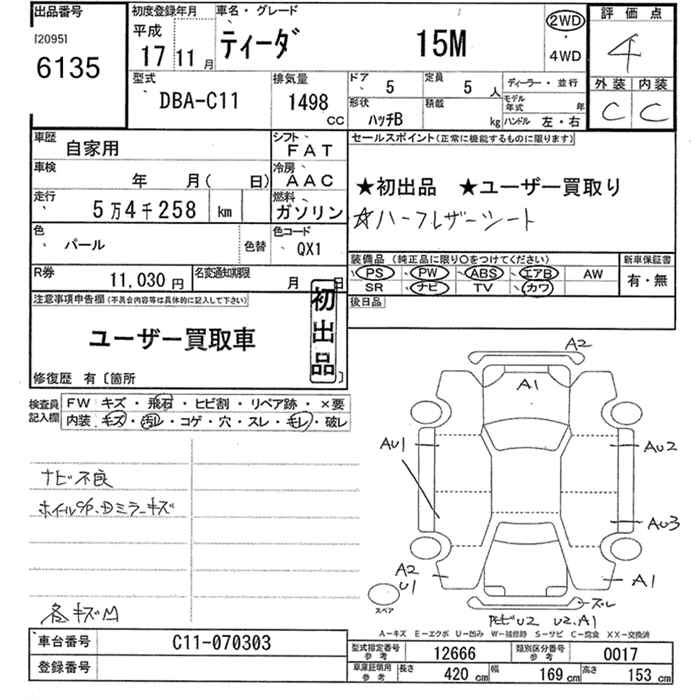 出品番号
120951
6135
初度登録年月
平成
17 11 月
車名・グレード
ティーダ
15M
2WD
4WD
評価点
4
外装 内装
C C
型式
DBA-C11
排気量
1498
cc
ドア
5
定員
5 人
形状
ハッチB
積載
kg
ディーラー・並行
モデル年式 年
ハンドル 左・右
車歴
自家用
シフト
FAT
車検
年 月( 日)
冷房
AAC
走行
5万4千258 km
燃料
ガソリン
色
パール
色替
色コード
QX1
セールスポイント(正常に機能するものに限ります)
★初出品 ★ユーザー買取り
☆ハーフレザーシート
装備品 (純正品に限り○をつけてください)
PS PW ABS エアB AW
SR ナビ TV カワ
新車保証書
有・無
R券
11,030 円
名変通知期限
月 日
後日品
注意事項申告欄(不具合内容等は具体的に記入して下さい)
ユーザー買取車
初出品
修復歴 有〔箇所 〕
検査員記入欄
FW キズ・飛石・ヒビ割・リペア跡・×要
内装 キズ・汚れ・コゲ・穴・スレ・モレ・破レ
ナビ不良
各キズM
A2
A1
AU1
AU2
AU3
A2
U1
A1
スペア
スレ
U2
U2.A1
A−キズ E−エクボ U−凹み W−補修跡 S−サビ C−腐食 XX−交換済
車台番号
C11-070303
登録番号
型式指定番号
参考
12666
類別区分番号
参考
0017
車庫証明用
参考
長さ
420 cm
幅
169 cm
高さ
153 cm